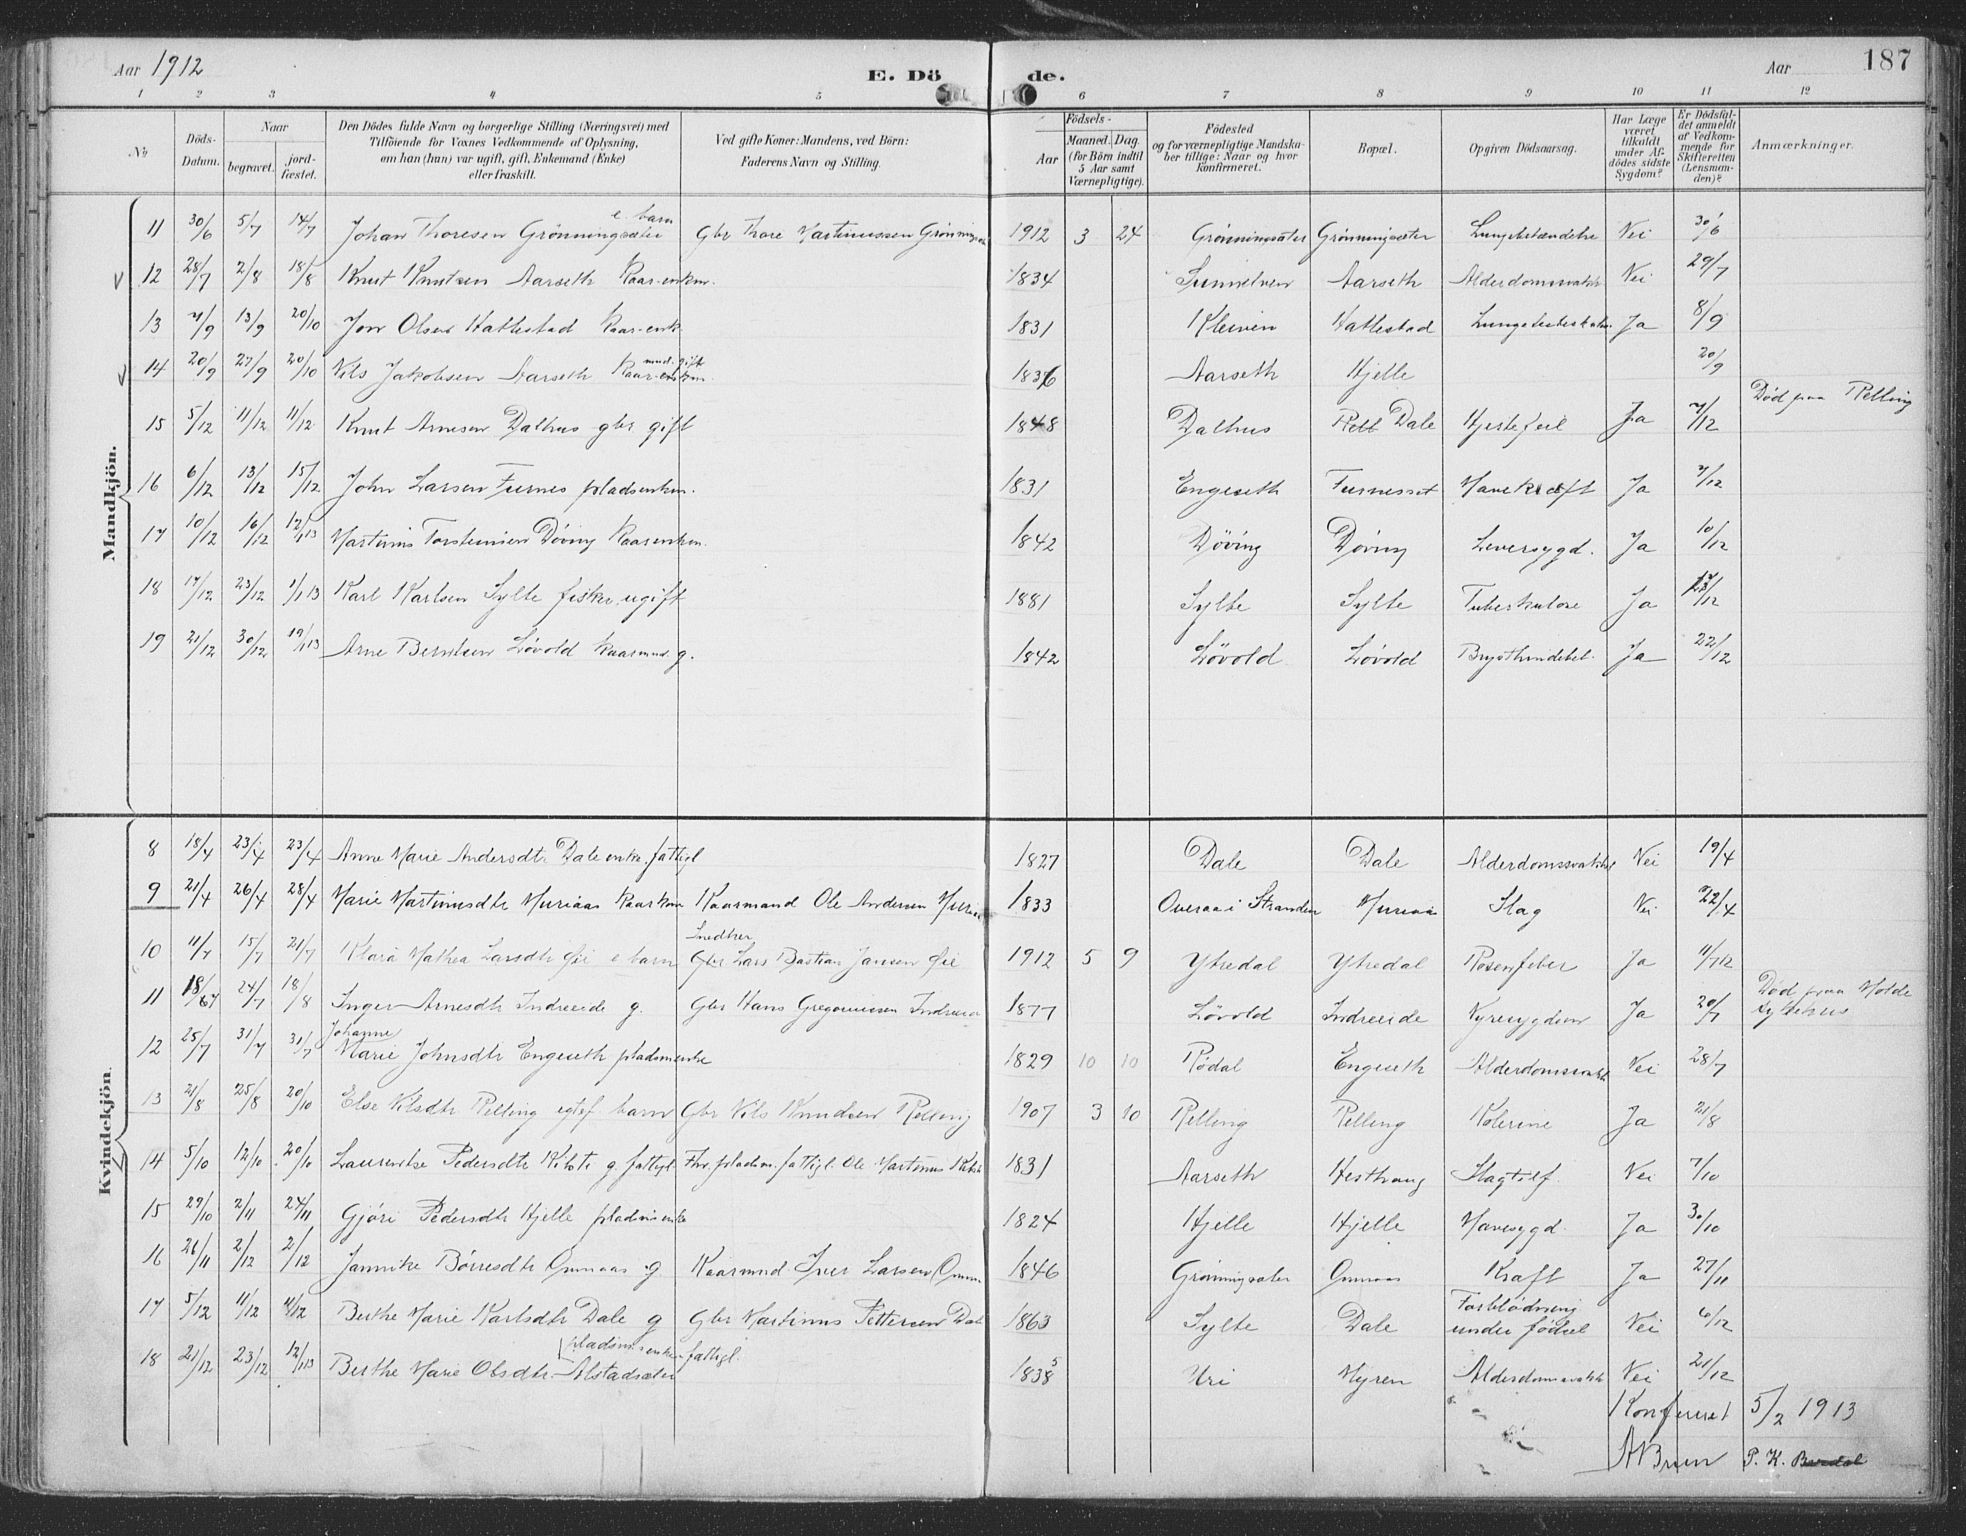 Aar 1912 E. Dö de. Aar 187
1 2 3 4 5 6 7 8 9 10 11 12
No Döds-Datum. Naar begravet. jord-fæstet. Den Dödes fulde Navn og borgerlige Stilling (Næringsvei) med Tilföiende for Voxnes Vedkommende af Oplysning, om han (hun) var ugift, gift, Enkemand (Enke) eller fraskilt. Ved gifte Koner: Mandens, ved Börn: Faderens Navn og Stilling. Aar Födsels- Maaned. Dag. (for Börn indtil 5 Aar samt Værnepligtige). Födested og for værnepligtige Mandskaber tillige: Naar og hvor Konfirmeret. Bopæl. Opgiven Dödsaarsag. Har Læge været tilkaldt under Afdödes sidste Sygdom? Er Dödsfaldet anmeldt af Vedkommende for Skifteretten (Lensmanden)? Anmærkninger.
Mandkjön.
11 30/6 5/7 14/7 Johan Thoresen Grönningsæter e. barn Gbr Thore Martinussen 1912 3 24 Grönningsæter Grönningsæter Lungebetændelse Nei 30/6
12 28/7 2/8 18/8 Knut Knutsen Aarseth Kaar-enkm. 1834 Sunnelven Aarseth Alderdomssvakh Nei 29/7
13 7/9 13/9 20/10 Jon Olsen Hattestad Kaar-enk. 1831 Kleiven Hattestad Ja 8/9
14 20/9 27/9 20/10 Nils Jakobsen Aarseth Kaar-enkm. mnd. gift 1836 Aarseth Hjelle 20/9
15 5/12 11/12 11/12 Knut Arnesen Dalhus gbr gift 1848 Dalhus Dale Hjertefeil Ja 7/12 Död paa Relling
16 6/12 13/12 15/12 John Larsen Furnes pladsenkm. 1831 Engeseth Furnesset Mavekræft Ja 7/12
17 10/12 16/12 12/1 13 Martinus Torsteinsen Döving Kaarenkm. 1842 Döving Döving Leversygd. Ja 10/12
18 17/12 23/12 1/1 13 Karl Karlsen Sylte fisker, ugift 1881 Sylte Sylte Tuberkulose Ja 12
19 21/12 30/12 19/1 13 Arne Berntsen Lövold Kaarmnd. g. 1842 Lövold Lövold Brysthindebet. Ja 22/12
Kvindekjön.
8 18/4 23/4 23/4 Anne Marie Andersdtr Dale enke. fattigl 1827 Dale Dale Alderdomssvakh Nei 19/4
9 21/4 26/4 28/4 Marie Martinusdtr Muriaas Kaarkone Kaarmand Ole Andersen 1833 Overaa i Stranden Slag Nei 22/4
10 11/7 15/7 21/7 Klara Mathea Larsdtr Öie e barn Snedker Gbr Lars Bastian Jansen Öie 1912 5 9 Ytredal Ytredal Rosenfeber Ja 11/7 12
11 18/7 24/7 18/8 Inger Arnesdtr Indreeide g. Gbr Hans Gregoriussen 1877 Lövold Indreeide Nyresygdom Ja 20/7 Död paa Molde sykehus
12 25/7 31/7 31/7 Johanne Marie Johnsdtr Engeseth pladsmenke 1829 10 10 Rødal Engeseth Alderdomssvakh Nei 28/7
13 21/8 25/8 20/10 Else Nilsdtr Relling egtef. barn Gbr Nils Knudsen Relling 1907 3 10 Relling Relling Kolerine Ja 21/8
14 5/10 12/10 20/10 Laurentse Pedersdtr g. fattigl. Fhv. pladsm. fattigl. Ole Martinus 1831 Aarseth Nei 7/10
15 29/10 2/11 24/11 Gjöri Pedersdtr Hjelle pladsmenke 1824 Hjelle Hjelle Mavesygd. Ja 30/10
16 26/11 2/12 2/12 Jannike Börresdtr g. Kaarmnd Iver Larsen 1846 Grönningsæter Kræft Ja 27/11
17 5/12 11/12 11/12 Berthe Marie Karlsdtr Dale g Gbr Martinus Pettersen Dale 1863 Sylte Dale Forblödning under födsel Nei 6/12
18 21/12 23/12 12/1 13 Berthe Marie Olsdtr Alstadsæter (pladsm.enke. fattigl. 1838 5 Uri Myren Alderdomssvakh Nei 21/12
Konfereret 5/2 1913
ABruun P. K.